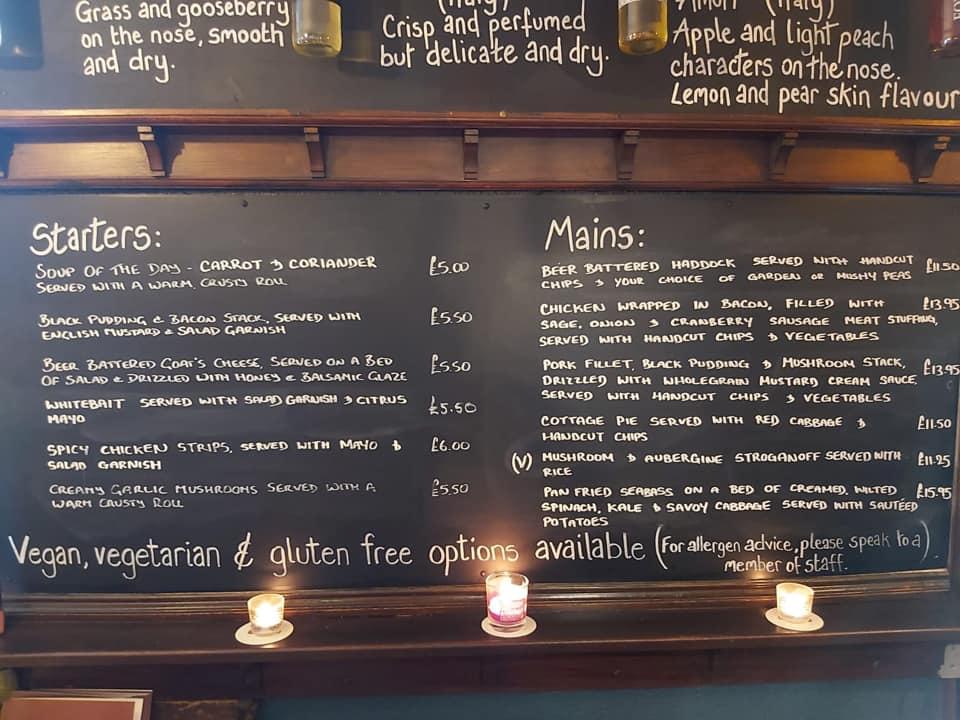 Grass and gooseberry
on the nose, smooth
and dry.
(Italy)
Crisp and perfumed
but delicate and dry.
(Italy)
Apple and light peach
characters on the nose.
Lemon and pear skin flavour
Starters:
SOUP OF THE DAY - CARROT & CORIANDER £5.00
SERVED WITH A WARM CRUSTY ROLL
BLACK PUDDING & BACON STACK, SERVED WITH £5.50
ENGLISH MUSTARD & SALAD GARNISH
BEER BATTERED GOAT'S CHEESE, SERVED ON A BED £5.50
OF SALAD & DRIZZLED WITH HONEY & BALSAMIC GLAZE
WHITEBAIT SERVED WITH SALAD GARNISH & CITRUS £5.50
MAYO
SPICY CHICKEN STRIPS, SERVED WITH MAYO & £6.00
SALAD GARNISH
CREAMY GARLIC MUSHROOMS SERVED WITH A £5.50
WARM CRUSTY ROLL
Mains:
BEER BATTERED HADDOCK SERVED WITH HANDCUT £11.50
CHIPS & YOUR CHOICE OF GARDEN OR MUSHY PEAS
CHICKEN WRAPPED IN BACON, FILLED WITH £13.95
SAGE, ONION & CRANBERRY SAUSAGE MEAT STUFFING,
SERVED WITH HANDCUT CHIPS & VEGETABLES
PORK FILLET, BLACK PUDDING & MUSHROOM STACK, £13.95
DRIZZLED WITH WHOLEGRAIN MUSTARD CREAM SAUCE
SERVED WITH HANDCUT CHIPS & VEGETABLES
COTTAGE PIE SERVED WITH RED CABBAGE & £11.50
HANDCUT CHIPS
(V) MUSHROOM & AUBERGINE STROGANOFF SERVED WITH £11.25
RICE
PAN FRIED SEABASS ON A BED OF CREAMED, WILTED £15.95
SPINACH, KALE & SAVOY CABBAGE SERVED WITH SAUTÉED
POTATOES
Vegan, vegetarian & gluten free options available (For allergen advice, please speak to a
member of staff.)